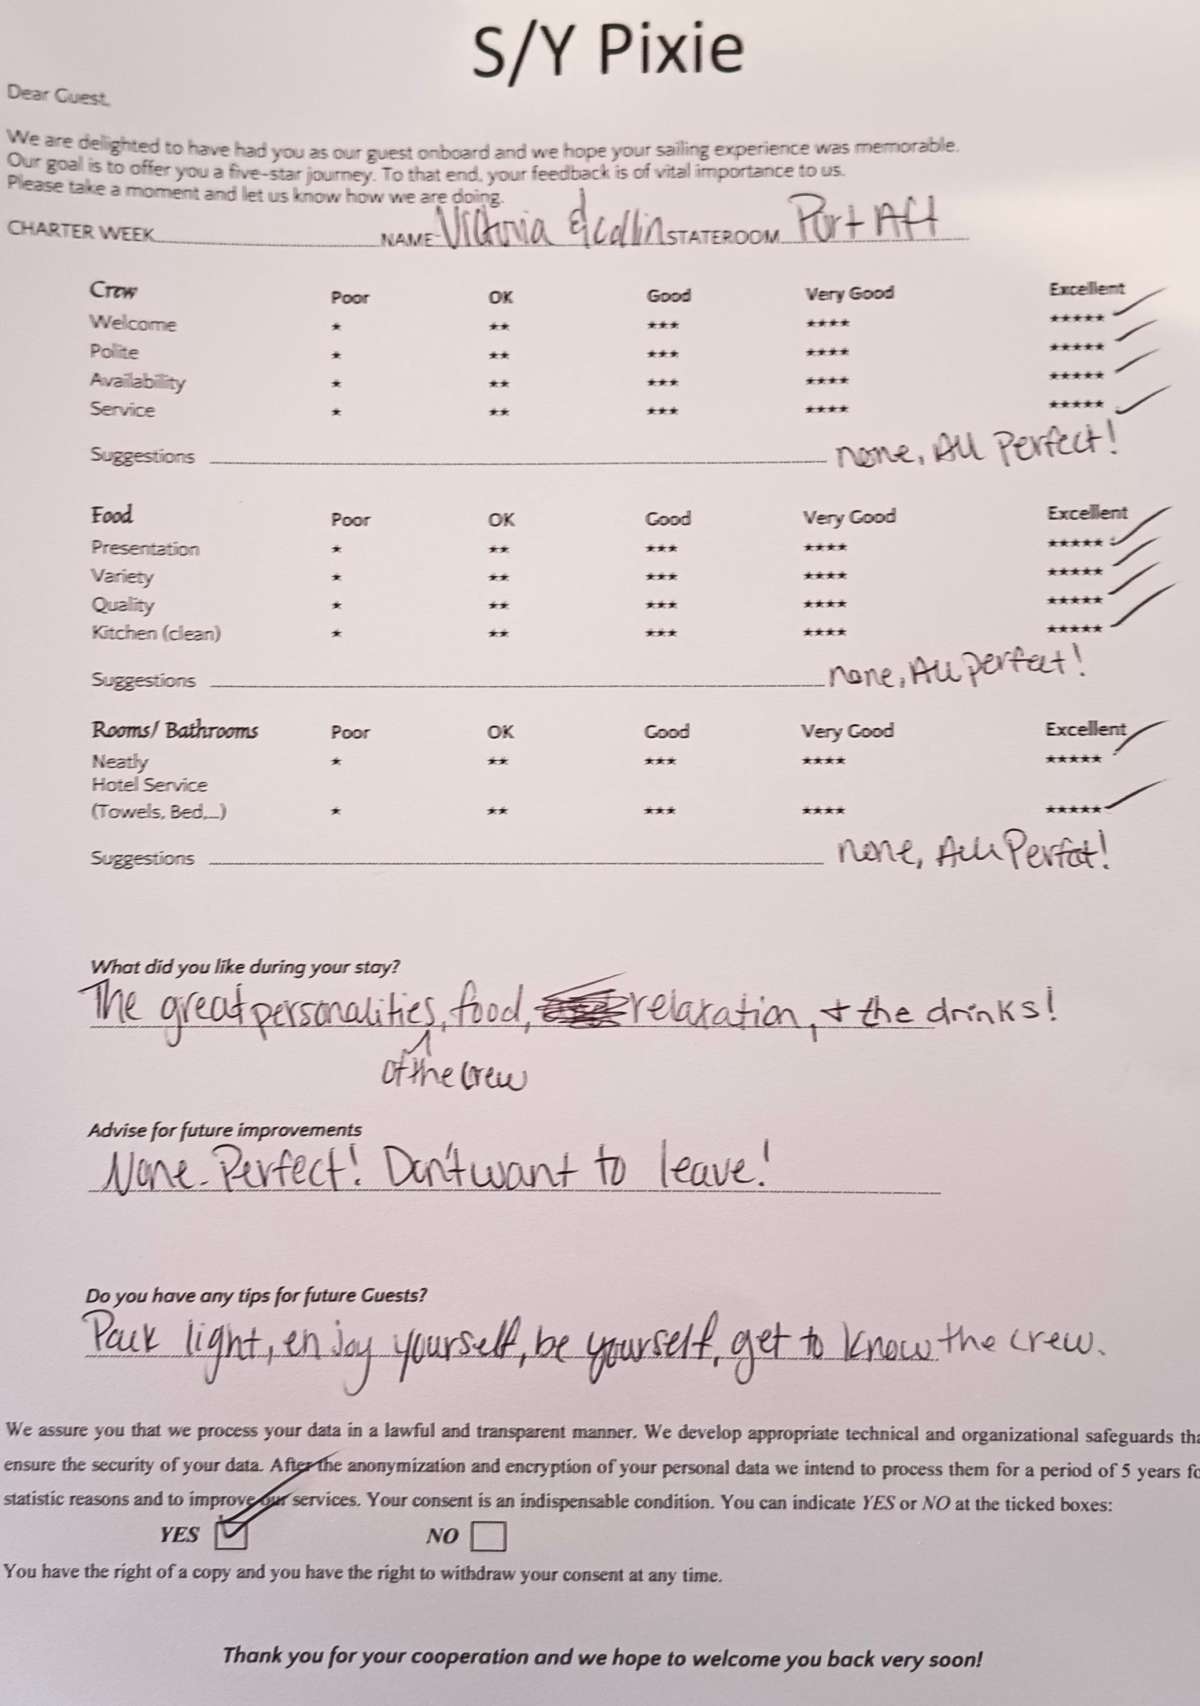 S/Y Pixie
Dear Guest,
We are delighted to have had you as our guest onboard and we hope your sailing experience was memorable.
Our goal is to offer you a five-star journey. To that end, your feedback is of vital importance to us.
Please take a moment and let us know how we are doing.
CHARTER WEEK NAME Victoria & Collin STATEROOM Port Aft
Crew Poor OK Good Very Good Excellent
Welcome * ** *** **** *****
Polite * ** *** **** *****
Availability * ** *** **** *****
Service * ** *** **** *****
Suggestions none, All Perfect!
Food Poor OK Good Very Good Excellent
Presentation * ** *** **** *****
Variety * ** *** **** *****
Quality * ** *** **** *****
Kitchen (clean) * ** *** **** *****
Suggestions none, All perfect!
Rooms/ Bathrooms Poor OK Good Very Good Excellent
Neatly * ** *** **** *****
Hotel Service
(Towels, Bed,...) * ** *** **** *****
Suggestions none, All Perfect!
What did you like during your stay?
The great personalities, food, relaxation, + the drinks!
of the crew
Advise for future improvements
None. Perfect! Don't want to leave!
Do you have any tips for future Guests?
Pack light, enjoy yourself, be yourself, get to know the crew.
We assure you that we process your data in a lawful and transparent manner. We develop appropriate technical and organizational safeguards tha
ensure the security of your data. After the anonymization and encryption of your personal data we intend to process them for a period of 5 years fo
statistic reasons and to improve our services. Your consent is an indispensable condition. You can indicate YES or NO at the ticked boxes:
YES NO
You have the right of a copy and you have the right to withdraw your consent at any time.
Thank you for your cooperation and we hope to welcome you back very soon!